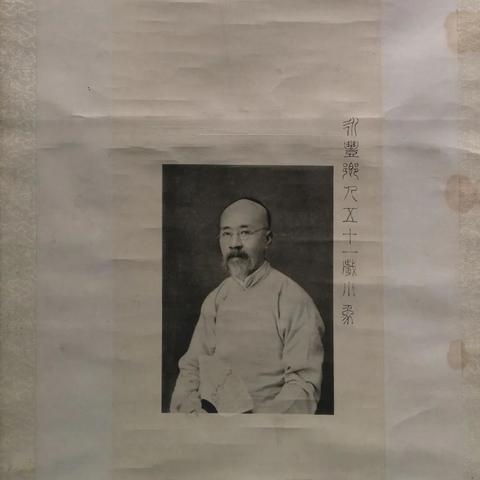 永豐鄉人五十一歲小象